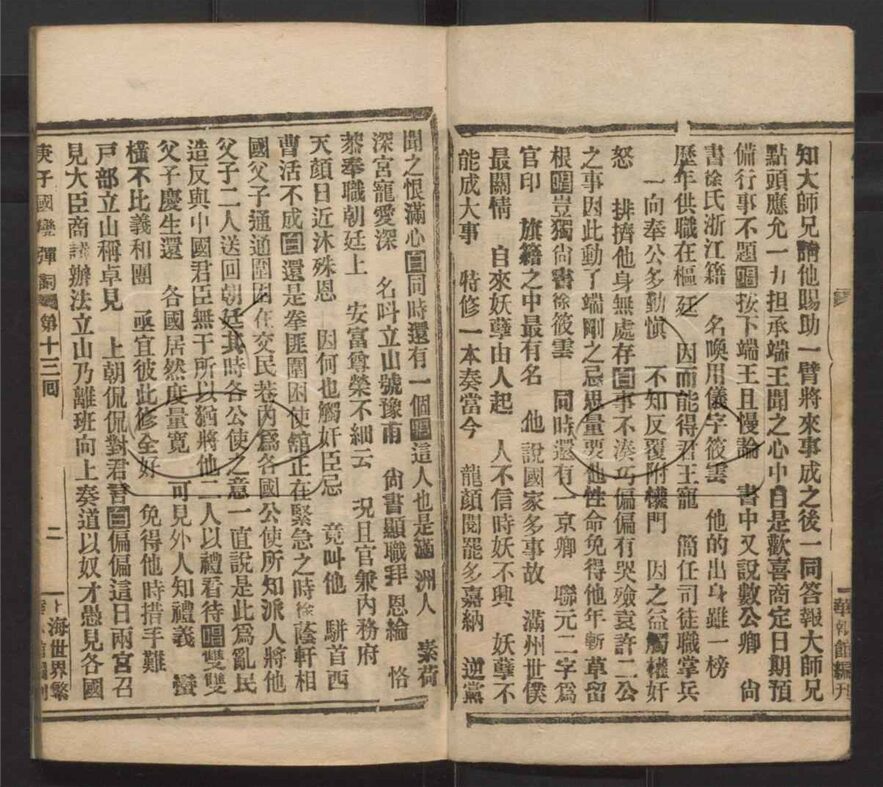 知大師兄請他賜助一臂將來事成之後一同答報大師兄
點頭應允一力担承端王聞之心中自是歡喜商定日期預
備行事不題唱按下端王且慢論 書中又說數公卿 尙
書徐氏浙江籍 名喚用儀字筱雲 他的出身雖一榜
歷年供職在樞廷 因而能得君王寵 簡任司徒職掌兵
一向奉公多勤愼 不知反覆附權門 因之益觸權奸
怒 排擠他身無處存白事不湊巧偏偏有哭殮袁許二公
之事因此動了端剛之忌思量要他性命免得他年斬草留
根唱豈獨尙書徐筱雲 同時還有一京卿 聯元二字爲
官印 旗籍之中最有名 他說國家多事故 滿州世僕
最關情 自來妖孽由人起 人不信時妖不興 妖孽不
能成大事 特修一本奏當今 龍顏閱罷多嘉納 逆黨
華報館編刊
聞之恨滿心白同時還有一個唱這人也是滿洲人 素荷
深宮寵愛深 名呌立山號豫甫 尙書顯職拜恩綸 恪
恭奉職朝廷上 安富尊榮不細云 况且官兼內務府
天顏日近沐殊恩 因何也觸奸臣忌 竟叫他 駢首西
曹活不成白還是拳匪圍困使舘正在緊急之時徐蔭軒相
國父子通通圍困在交民巷內爲各國公使所知派人將他
父子二人送回朝廷其時各公使之意一直說是此爲亂民
造反與中國君臣無干所以猶將他二人以禮看待唱雙雙
父子慶生還 各國居然度量寬 可見外人知禮義 蠻
橫不比義和團 亟宜彼此修全好 免得他時措手難
戸部立山稱卓見 上朝侃侃對君言白偏偏這日兩宮召
見大臣商議辦法立山乃離班向上奏道以奴才愚見各國
庚子國變彈詞 第十三回 二 上海世界繁